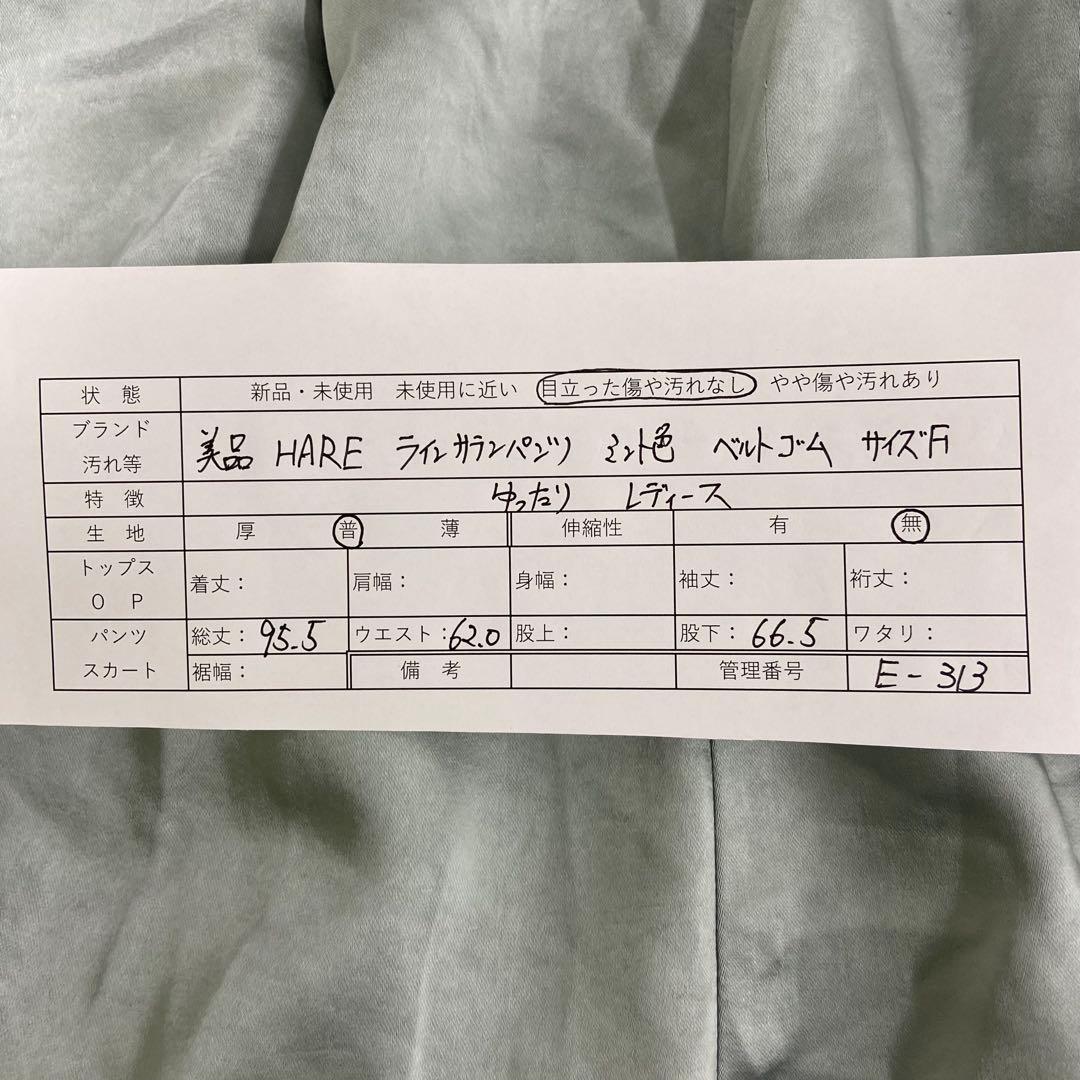 状 態 新品・未使用 未使用に近い 目立った傷や汚れなし やや傷や汚れあり
ブランド
汚れ等 美品 HARE ラインサランパンツ ミント色 ベルトゴム サイズF
特 徴 ゆったり レディース
生 地 厚 普 薄 伸縮性 有 無
トップス
O P 着丈: 肩幅: 身幅: 袖丈: 裄丈:
パンツ 総丈: 95.5 ウエスト: 62.0 股上: 股下: 66.5 ワタリ:
スカート 裾幅: 備 考 管理番号 E-313